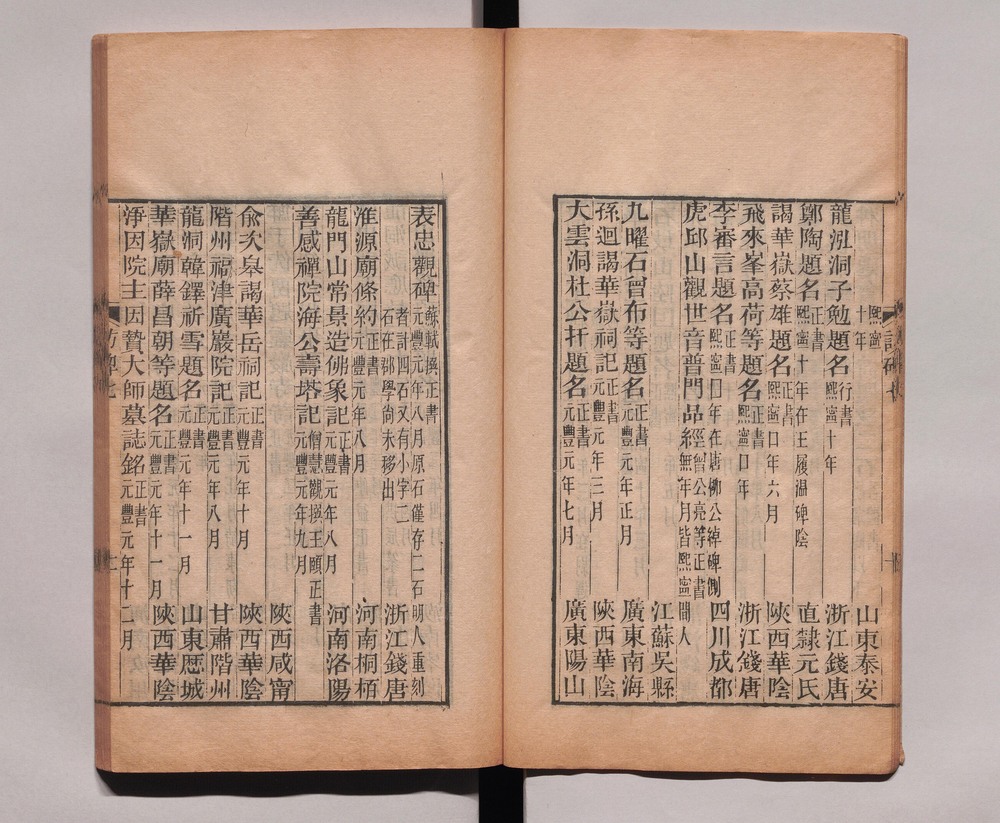 熙寧十年 山東泰安
龍泓洞子勉題名 行書 熙寧十年 浙江錢唐
鄭陶題名 正書 熙寧十年在王履溫碑陰 直隸元氏
謁華嶽蔡雄題名 正書 熙寧口年六月 陝西華陰
飛來峯高荷等題名 正書 熙寧口年 浙江錢唐
李審言題名 正書 熙寧口年在唐柳公綽碑側 四川成都
虎邱山觀世音普門品經 曾公亮等正書 無年月皆熙寧間人 江蘇吳縣
九曜石曾布等題名 正書 元豐元年正月 廣東南海
孫迥謁華嶽祠記 正書 元豐元年三月 陝西華陰
大雲洞杜公扞題名 正書 元豐元年七月 廣東陽山
表忠觀碑 蘇軾撰正書 元豐元年八月原石僅存二石明人重刻
者計四石又有小字二石在郡學尚未移出 浙江錢唐
淮源廟條約 正書 元豐元年八月 河南桐栢
龍門山常景造佛象記 正書 元豐元年八月 河南洛陽
善感禪院海公壽塔記 僧慧觀撰王頤正書 元豐元年九月
陝西咸甯
俞次皋謁華岳祠記 正書 元豐元年十月 陝西華陰
階州福津廣嚴院記 正書 元豐元年八月 甘肅階州
龍洞韓鐸祈雪題名 正書 元豐元年十一月 山東歷城
華嶽廟薛昌朝等題名 正書 元豐元年十一月 陝西華陰
淨因院主因贊大師墓誌銘 正書 元豐元年十二月